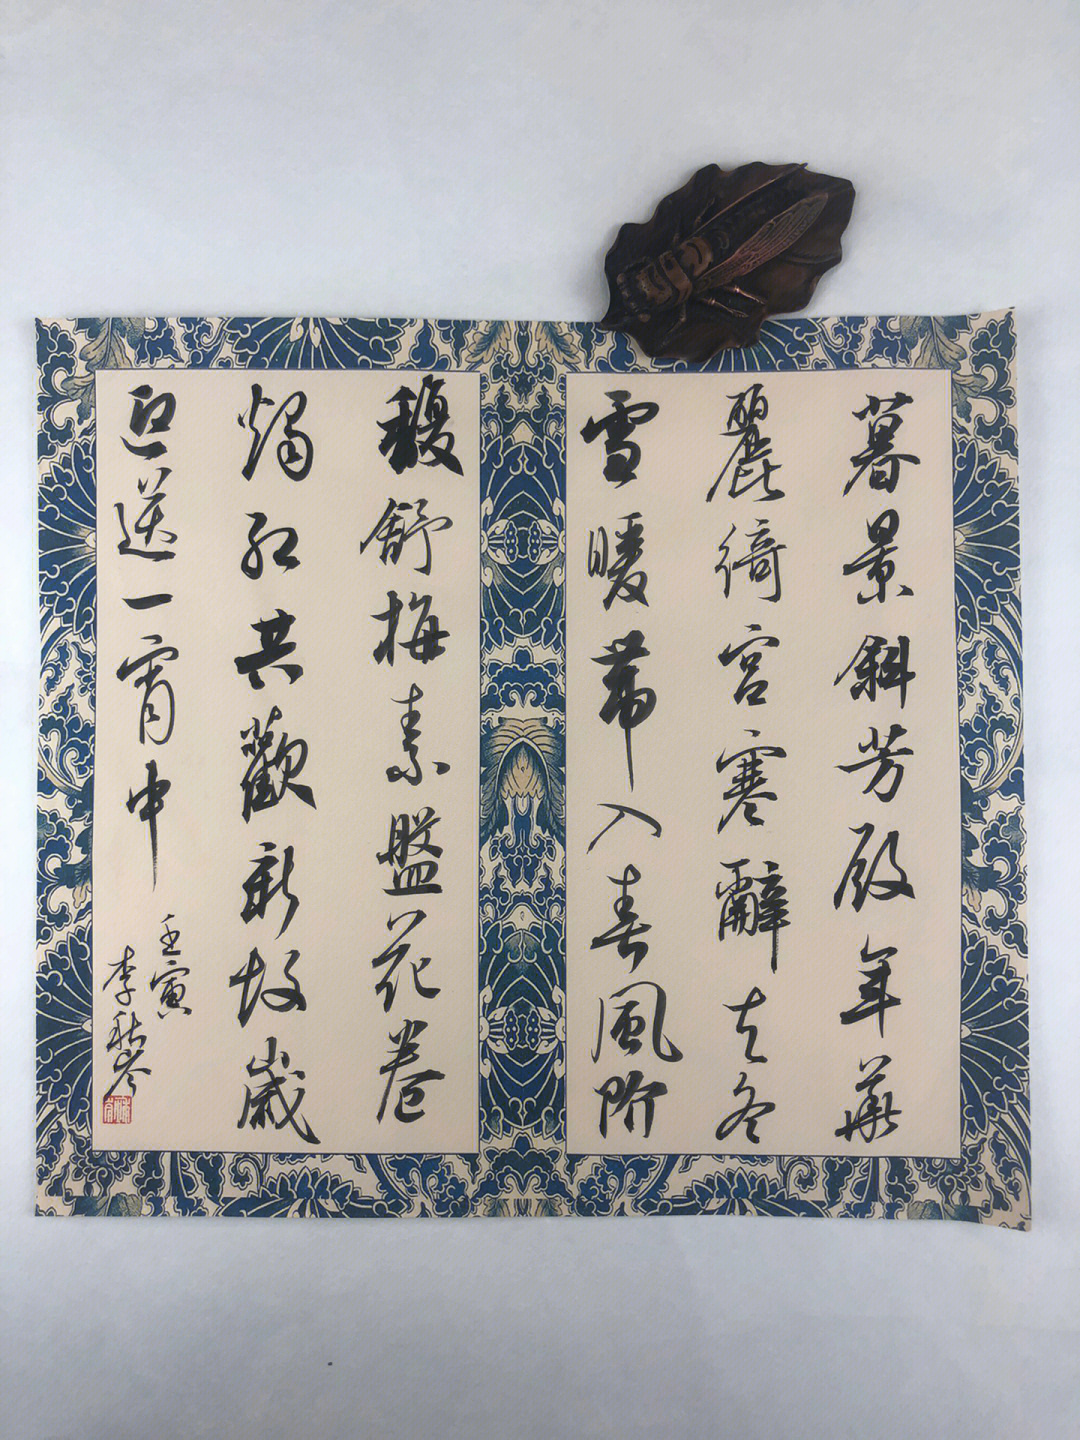 暮景斜芳殿年華
麗綺宮寒辭去冬
雪暖帶入春風階
馥舒梅素盤花卷
燭紅共歡新故歲
迎送一宵中
壬寅
李秋岑